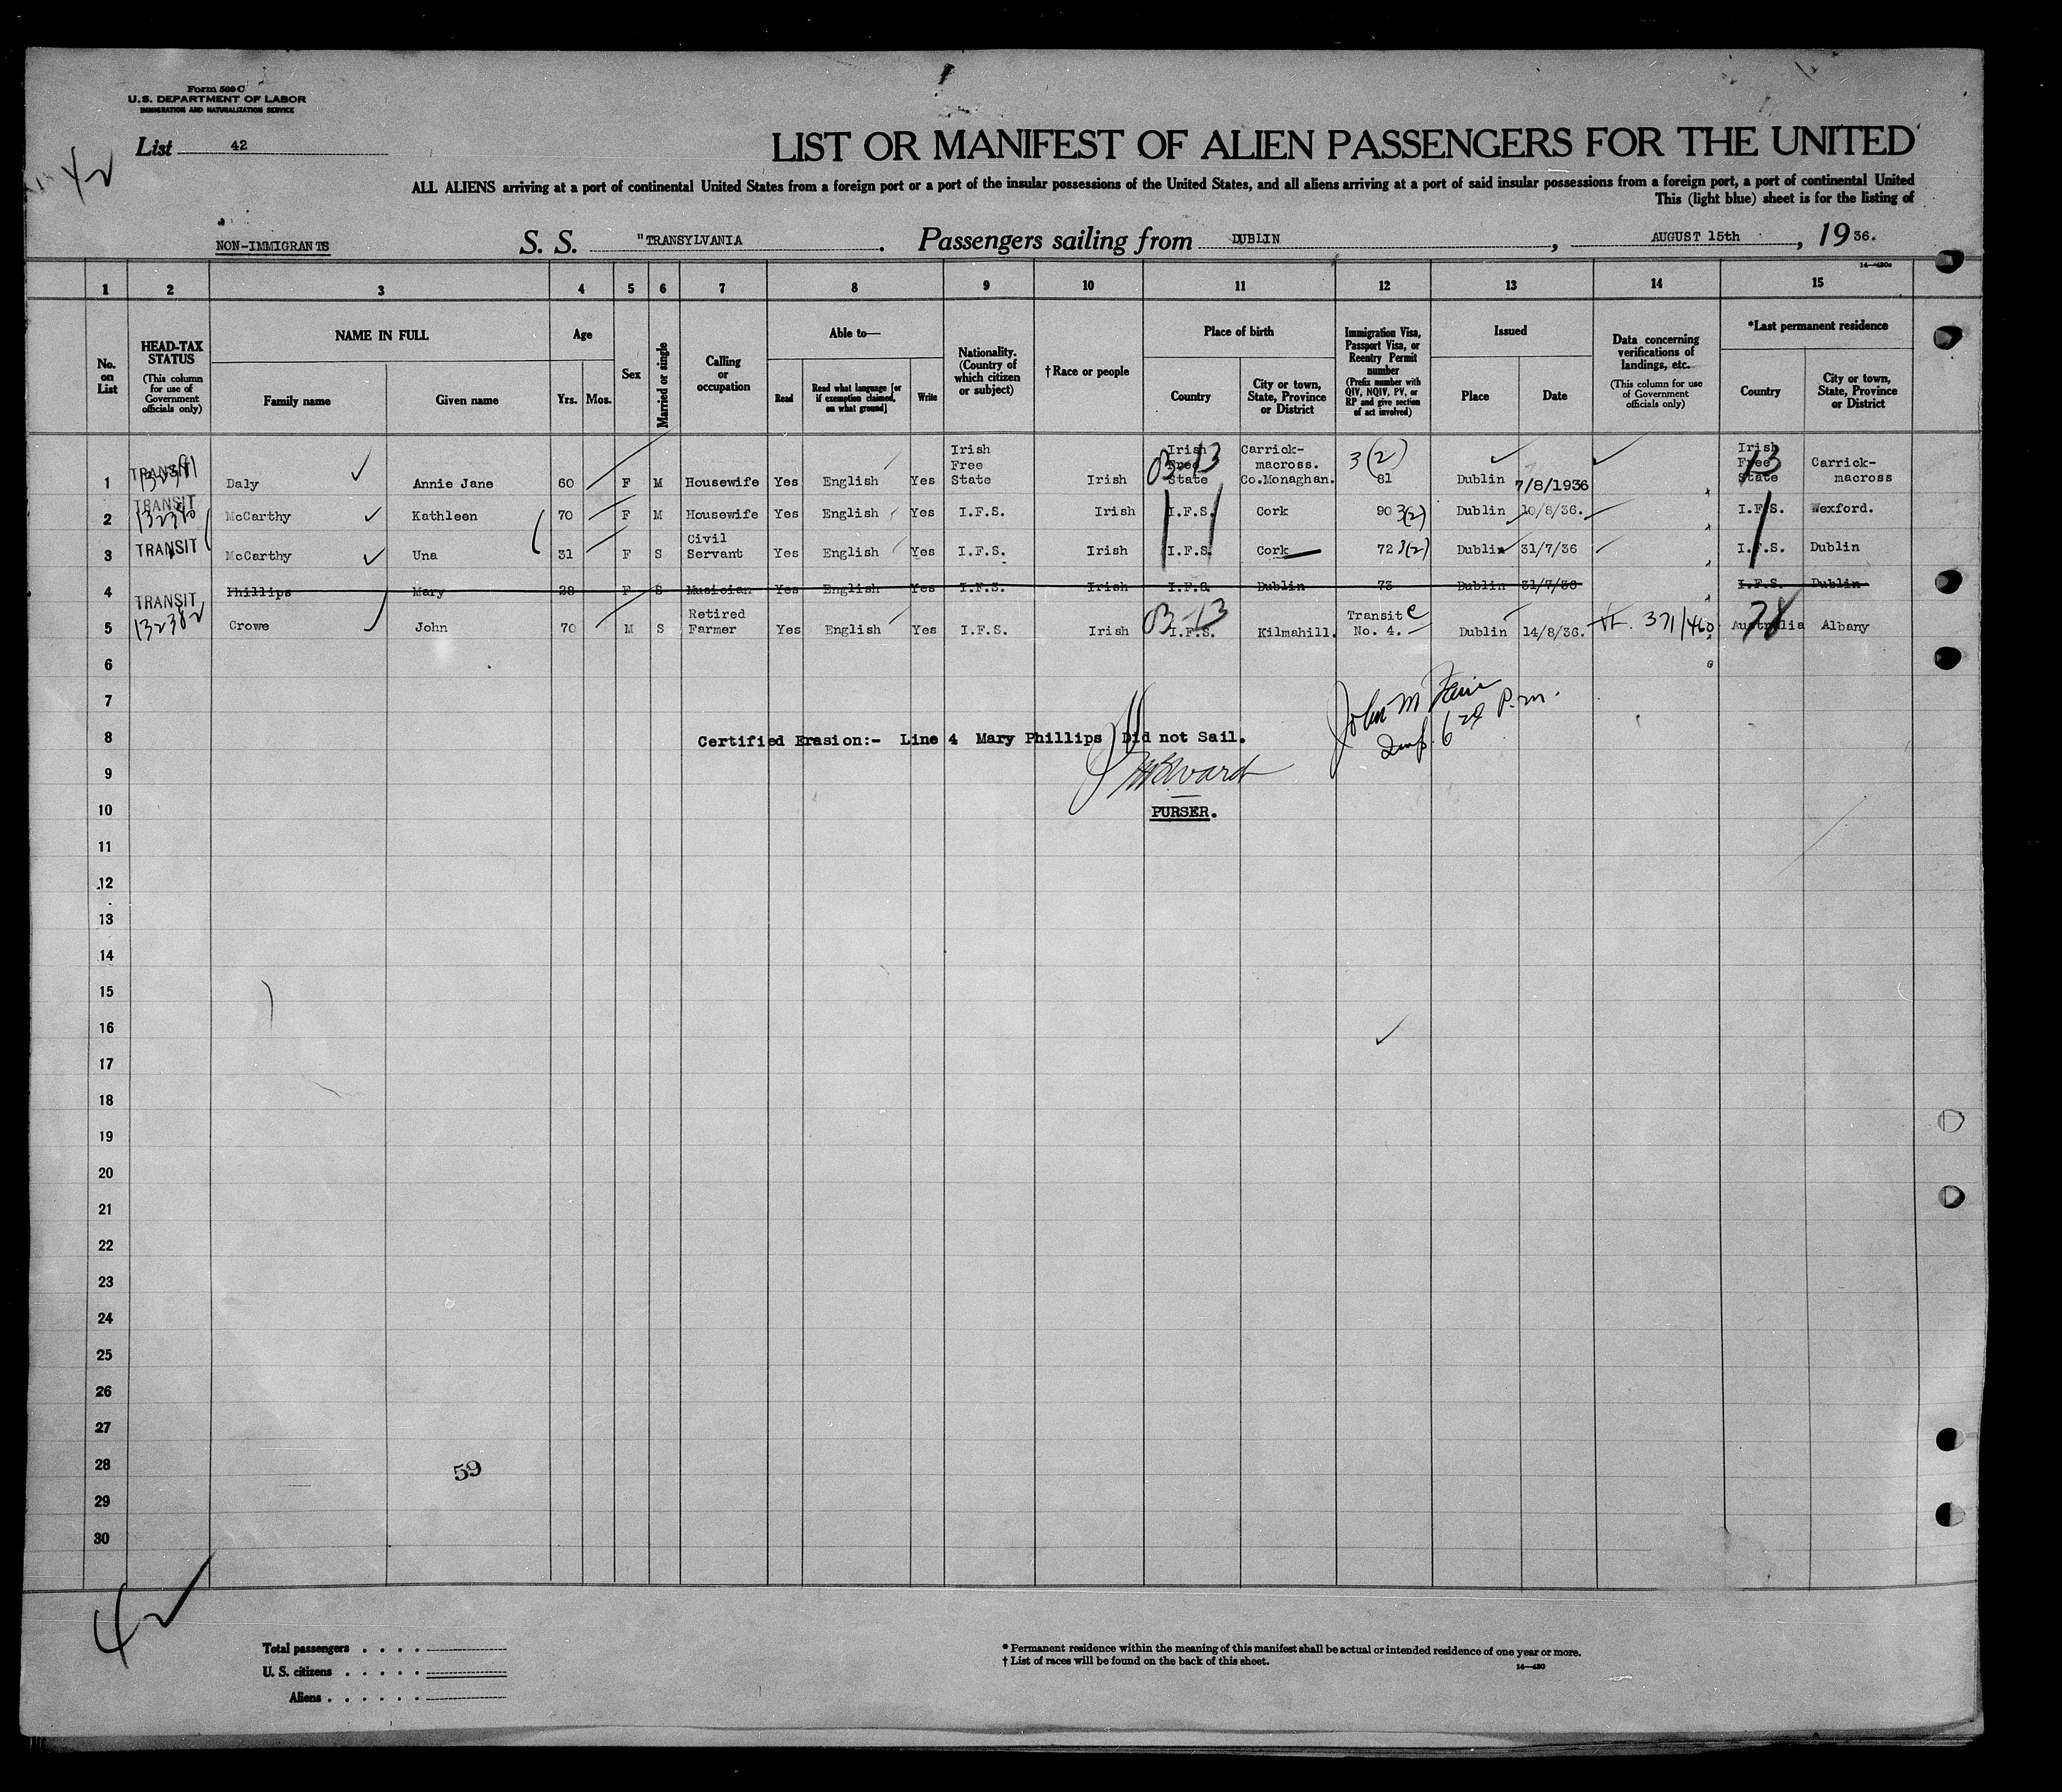 Form 500 C
U.S. DEPARTMENT OF LABOR
IMMIGRATION AND NATURALIZATION SERVICE
List 42
42
LIST OR MANIFEST OF ALIEN PASSENGERS FOR THE UNITED
ALL ALIENS arriving at a port of continental United States from a foreign port or a port of the insular possessions of the United States, and all aliens arriving at a port of said insular possessions from a foreign port, a port of continental United
This (light blue) sheet is for the listing of
NON-IMMIGRANTS S. S. "TRANSYLVANIA . Passengers sailing from DUBLIN , AUGUST 15th , 19 36.
1 2 3 4 5 6 7 8 9 10 11 12 13 14 15
No. on List
HEAD-TAX STATUS (This column for use of Government officials only)
NAME IN FULL Family name Given name
Age Yrs. Mos.
Sex
Married or single
Calling or occupation
Able to— Read Read what language [or if exemption claimed, on what ground] Write
Nationality. (Country of which citizen or subject)
†Race or people
Place of birth Country City or town, State, Province or District
Immigration Visa, Passport Visa, or Reentry Permit number (Prefix number with QIV, NQIV, PV, or RP and give section of act involved)
Issued Place Date
Data concerning verifications of landings, etc. (This column for use of Government officials only)
*Last permanent residence Country City or town, State, Province or District
1 TRANSIT 132381 Daly Annie Jane 60 F M Housewife Yes English Yes Irish Free State Irish Irish Free State 03-13 Carrick-macross. Co.Monaghan. 3(2) 81 Dublin 7/8/1936 Irish Free State 13 Carrick-macross
2 TRANSIT 132380 McCarthy Kathleen 70 F M Housewife Yes English Yes I.F.S. Irish I.F.S. Cork 90 3(2) Dublin 10/8/36. I.F.S. Wexford.
3 TRANSIT McCarthy Una 31 F S Civil Servant Yes English Yes I.F.S. Irish I.F.S. Cork 72 3(2) Dublin 31/7/36 I.F.S. Dublin
4 Phillips Mary 28 F S Musician Yes English Yes I.F.S. Irish I.F.S. Dublin 73 Dublin 31/7/36 I.F.S. Dublin
5 TRANSIT 132382 Crowe John 70 M S Retired Farmer Yes English Yes I.F.S. Irish 03-13 I.F.S. Kilmahill. Transit C No. 4. Dublin 14/8/36. 371/460 Australia 78 Albany
6
7
John M
8 Certified Erasion:- Line 4 Mary Phillips Did not Sail.
P.M.
9
Ward
10 PURSER.
11
12
13
14
15
16
17
18
19
20
21
22
23
24
25
26
27
28
59
29
30
42
Total passengers . . . .
U. S. citizens . . . . .
Aliens . . . . . .
* Permanent residence within the meaning of this manifest shall be actual or intended residence of one year or more.
† List of races will be found on the back of this sheet.
14—430